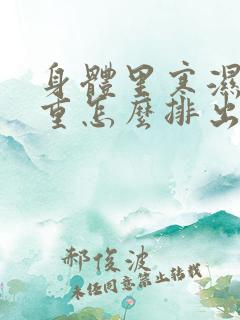 身體里寒濕
重怎麼排出
郝俊波
未经同意禁止转载